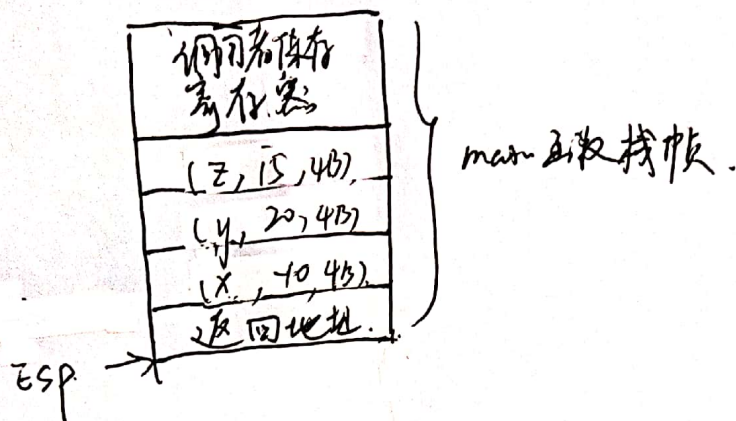 调用者保存
寄存器
(z, 15, 4B)
(y, 20, 4B)
(x, -10, 4B)
返回地址.
main函数栈帧.
ESP